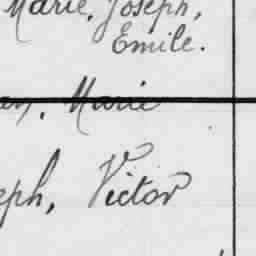 Marie, Joseph,
Emile.
Marie
eph, Victor